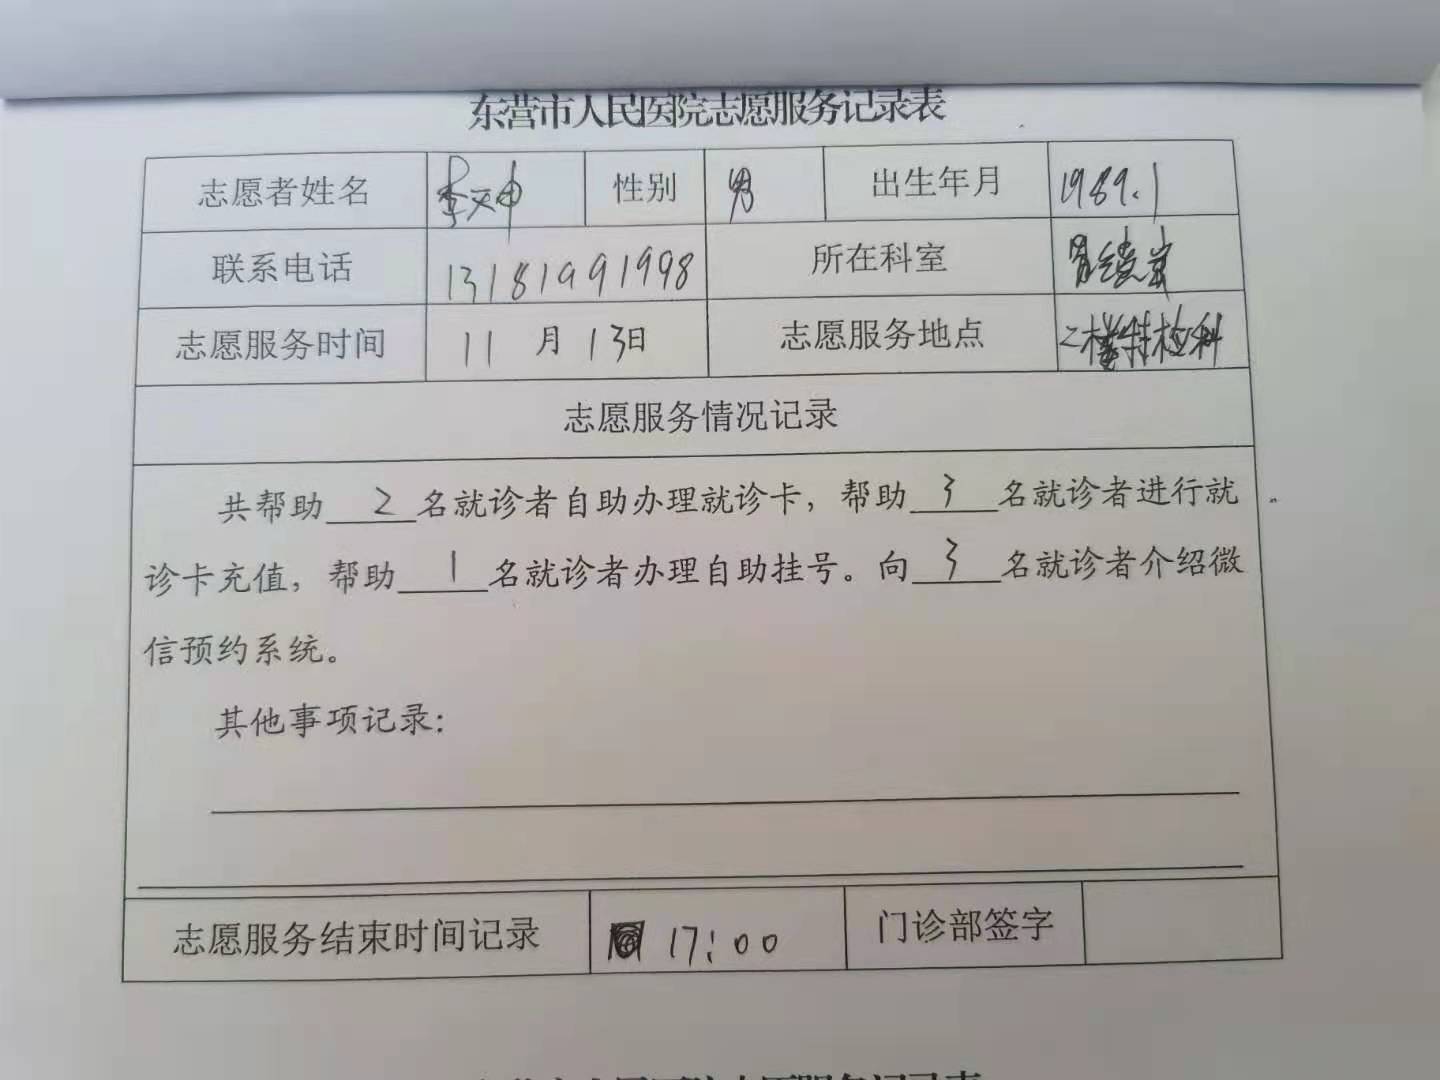 东营市人民医院志愿服务记录表
志愿者姓名 李天申 性别 男 出生年月 1989.1
联系电话 13181991998 所在科室 胃镜室
志愿服务时间 11月13日 志愿服务地点 二楼特检科
志愿服务情况记录
共帮助2名就诊者自助办理就诊卡，帮助3名就诊者进行就
诊卡充值，帮助1名就诊者办理自助挂号。向3名就诊者介绍微
信预约系统。
其他事项记录：
志愿服务结束时间记录 17:00 门诊部签字